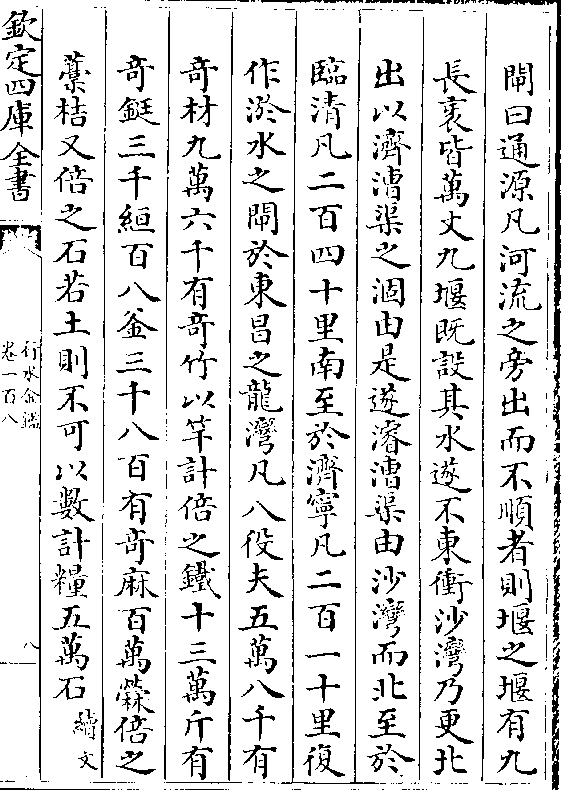 閘曰通源凡河流之旁出而不順者則堰之堰有九
長袤皆萬丈九堰既設其水遂不東衝沙灣乃更北
出以濟漕渠之涸由是遂濬漕渠由沙灣而北至於
臨清凡二百四十里南至於濟寧凡二百一十里復
作淤水之閘於東昌之龍灣凡八役夫五萬八千有
奇材九萬六千有奇竹以竿計倍之鐵十三萬斤有
奇鋌三千絙百八釜三十八百有奇麻百萬䕠倍之
藁桔又倍之石若土則不可以數計糧五萬石 續文
欽定四庫全書
行水金鑑
卷一百八
八